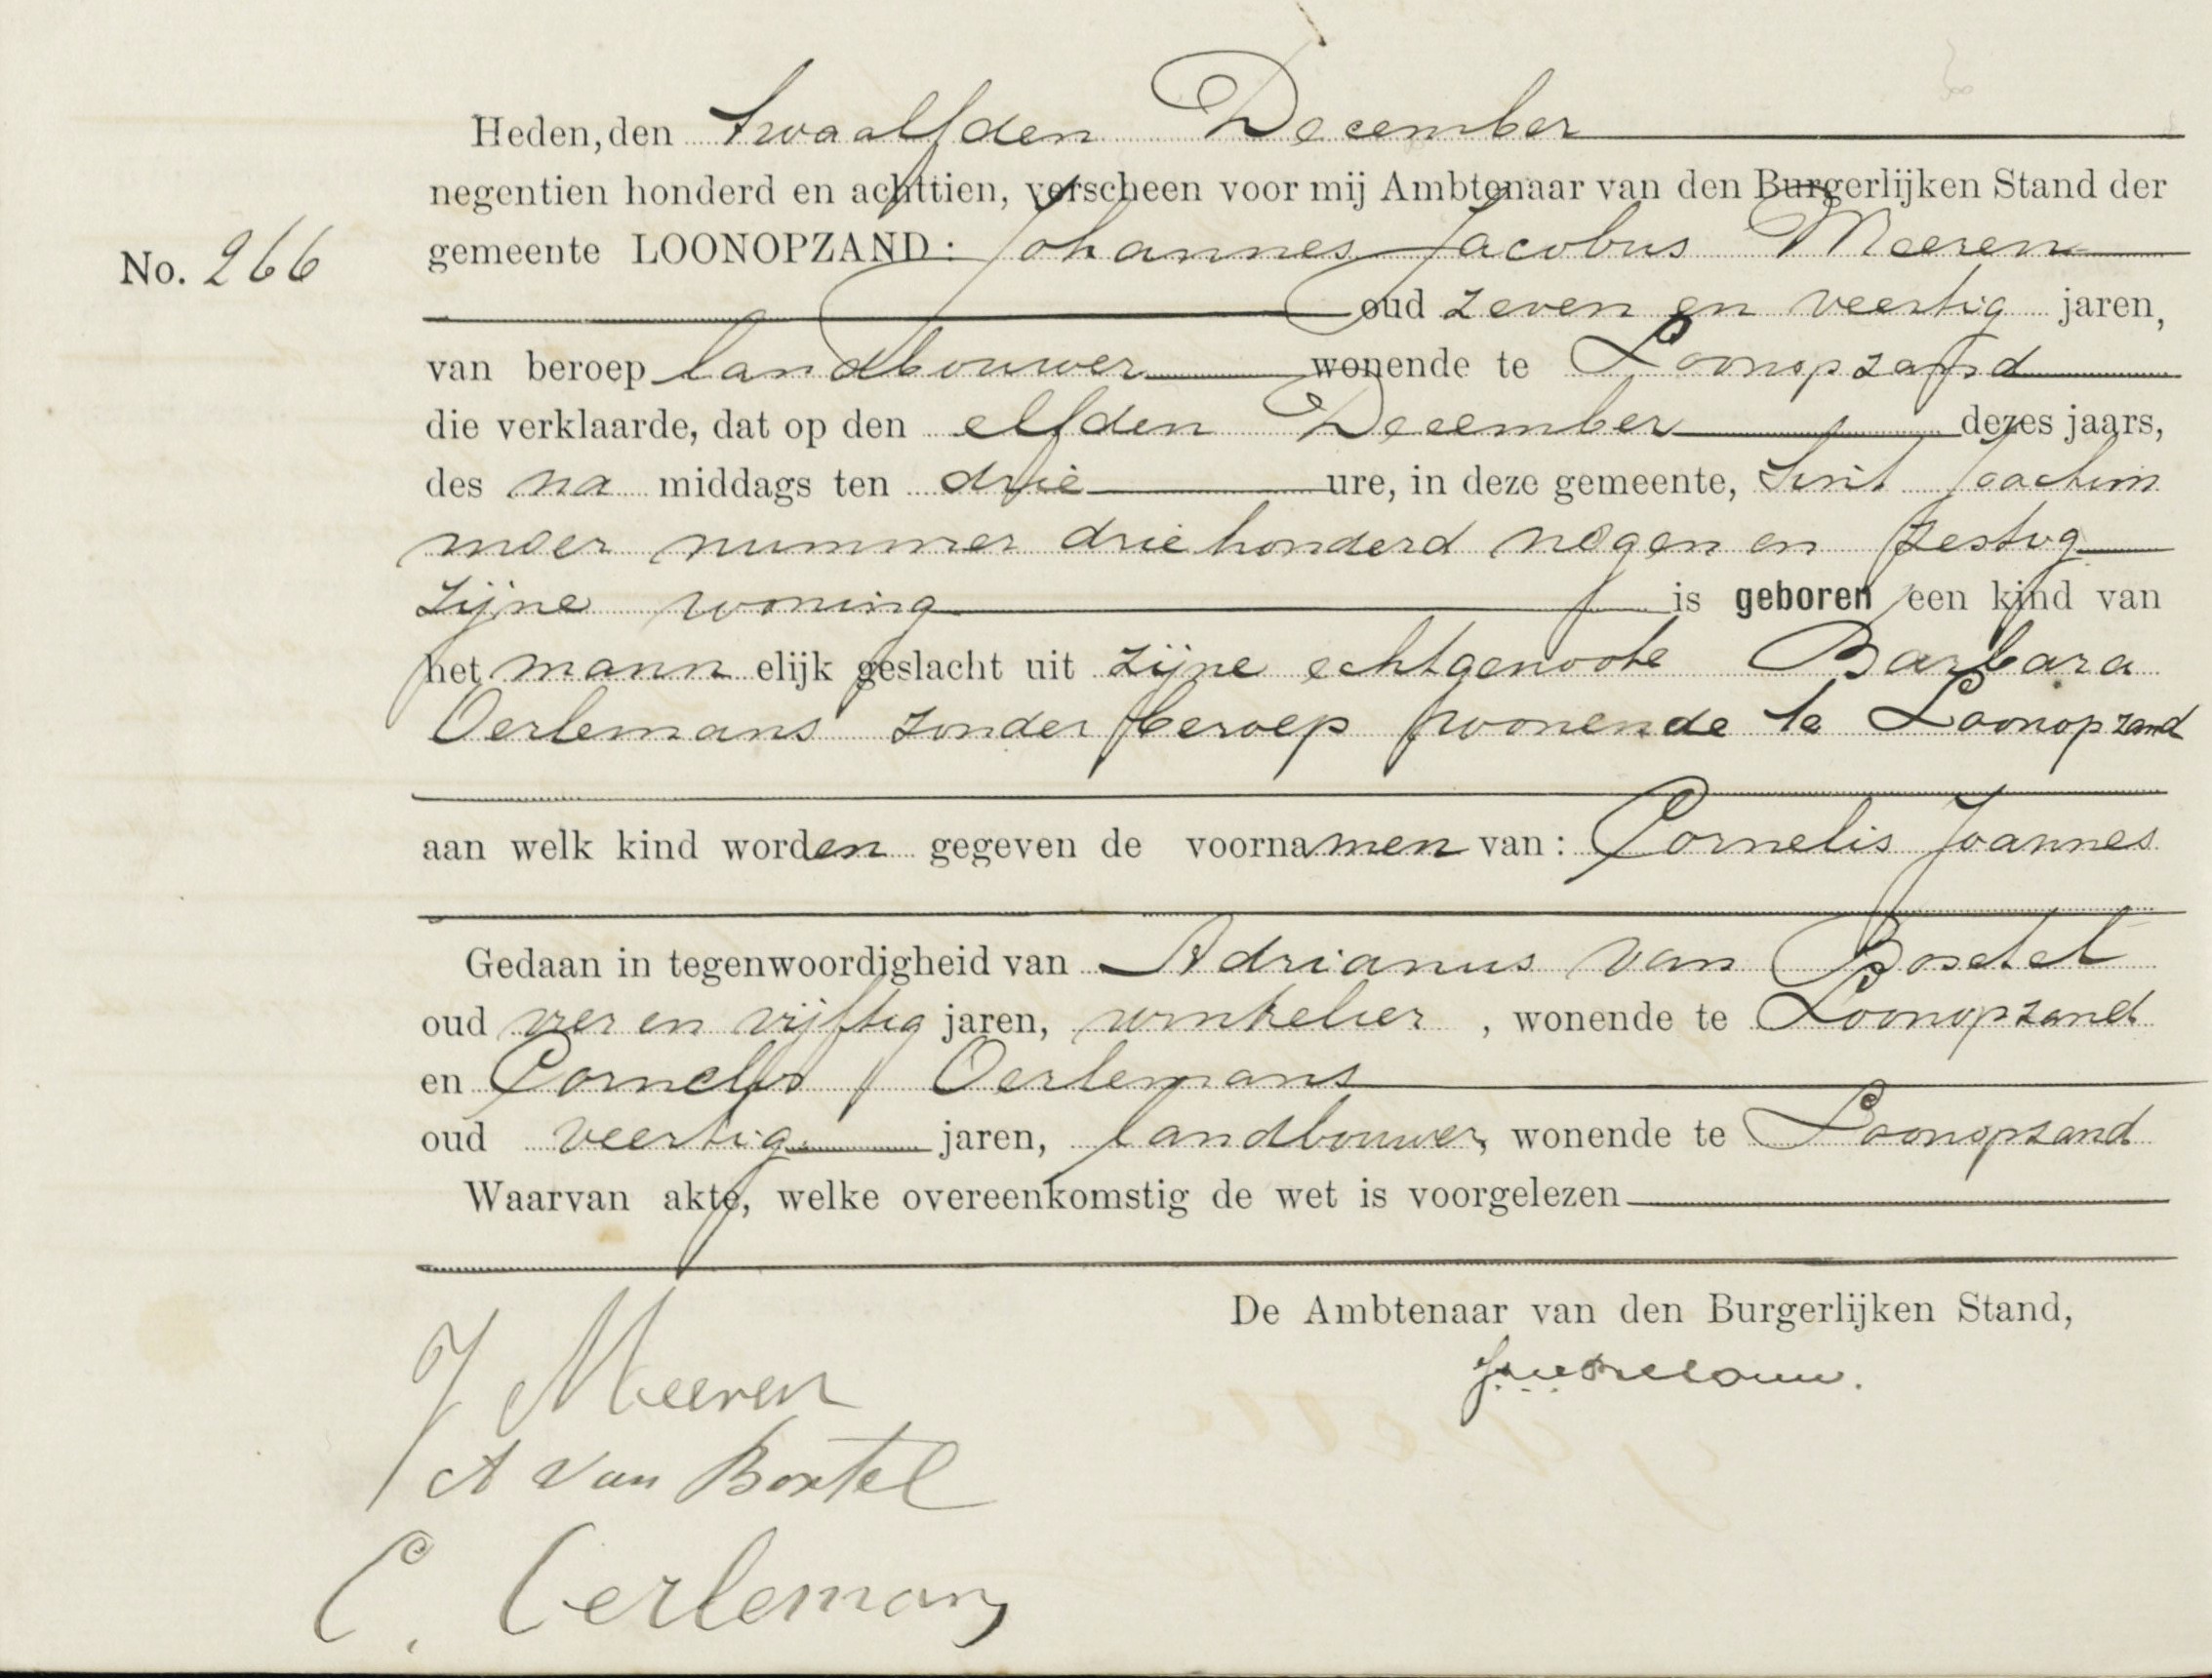 Heden, den twaalfden December
negentien honderd en achttien, verscheen voor mij Ambtenaar van den Burgerlijken Stand der
No. 266 gemeente LOONOPZAND: Johannes Jacobus Meeren
oud zeven en veertig jaren,
van beroep landbouwer wonende te Loonopzand
die verklaarde, dat op den elfden December dezes jaars,
des na middags ten drie ure, in deze gemeente, Sint Joachim
moer nummer driehonderd negen en zestig
zijne woning is geboren een kind van
het mann elijk geslacht uit zijne echtgenoote Barbara
Oerlemans zonder beroep wonende te Loonopzand
aan welk kind worden gegeven de voornamen van: Cornelis Joannes
Gedaan in tegenwoordigheid van Adrianus van Boxtel
oud vier en vijftig jaren, winkelier, wonende te Loonopzand
en Cornelis Oerlemans
oud veertig jaren, landbouwer, wonende te Loonopzand
Waarvan akte, welke overeenkomstig de wet is voorgelezen
De Ambtenaar van den Burgerlijken Stand,
J Meeren
A van Boxtel
C. Oerlemans